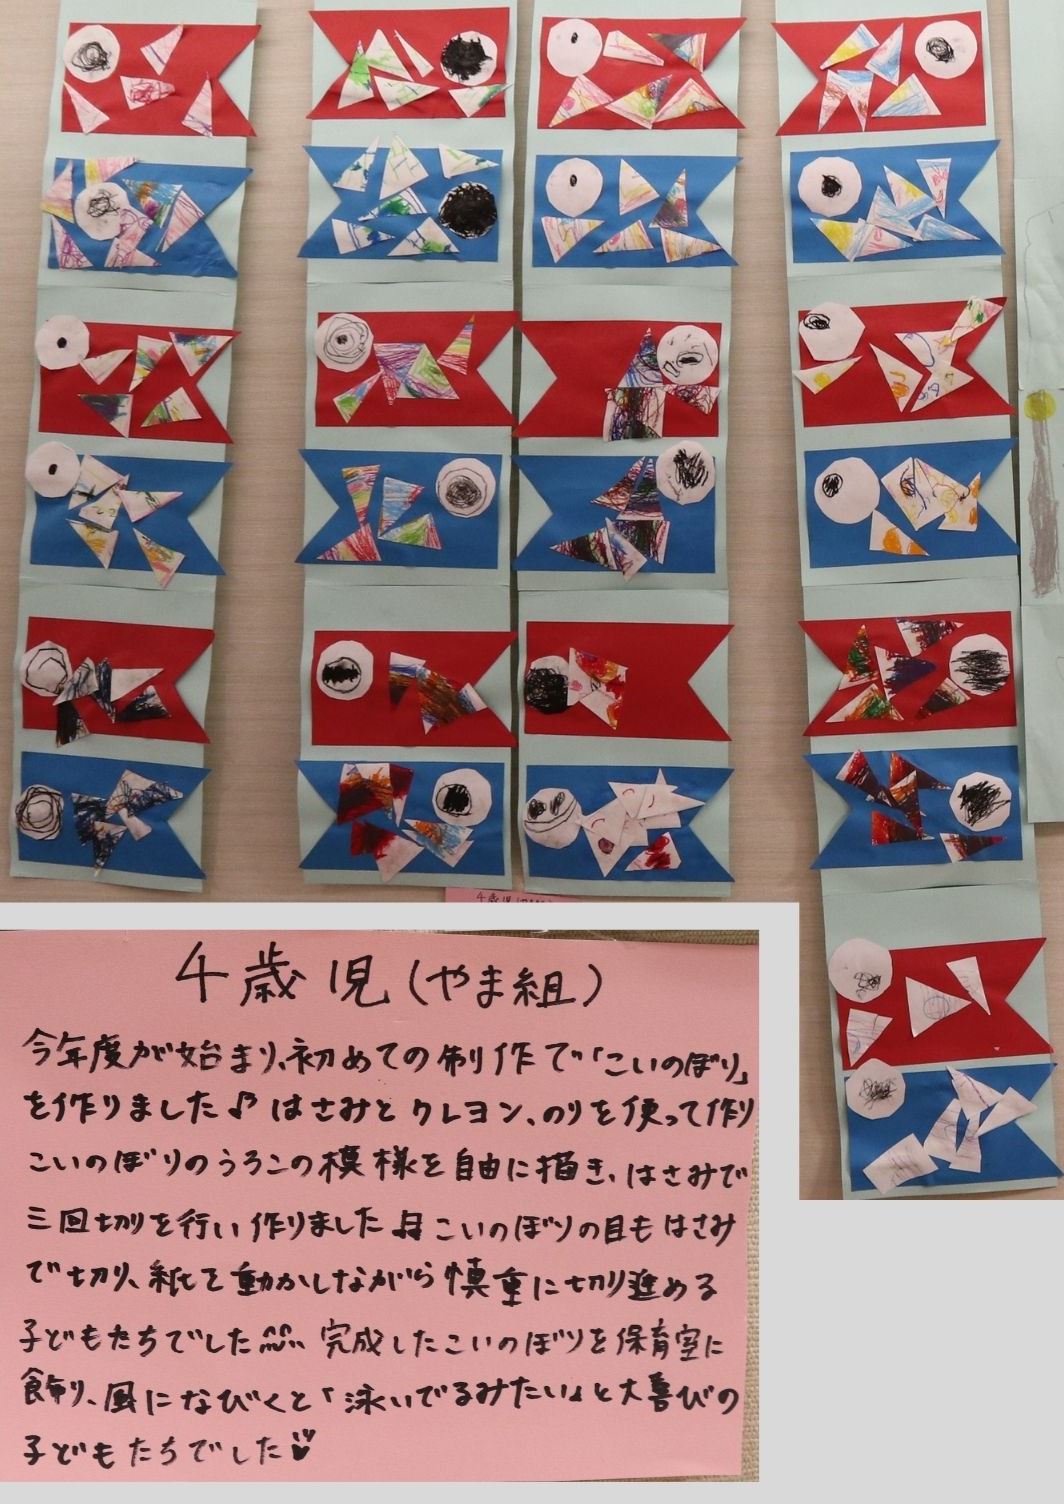 4歳児
4歳児(やま組)
今年度が始まり、初めての制作で「こいのぼり」
を作りました♪はさみとクレヨン、のりを使って作り
こいのぼりのうろこの模様を自由に描き、はさみで
三回切りを行い作りました♫こいのぼりの目もはさみ
で切り、紙を動かしながら慎重に切り進める
子どもたちでした 完成したこいのぼりを保育室に
飾り、風になびくと「泳いでるみたい」と大喜びの
子どもたちでした